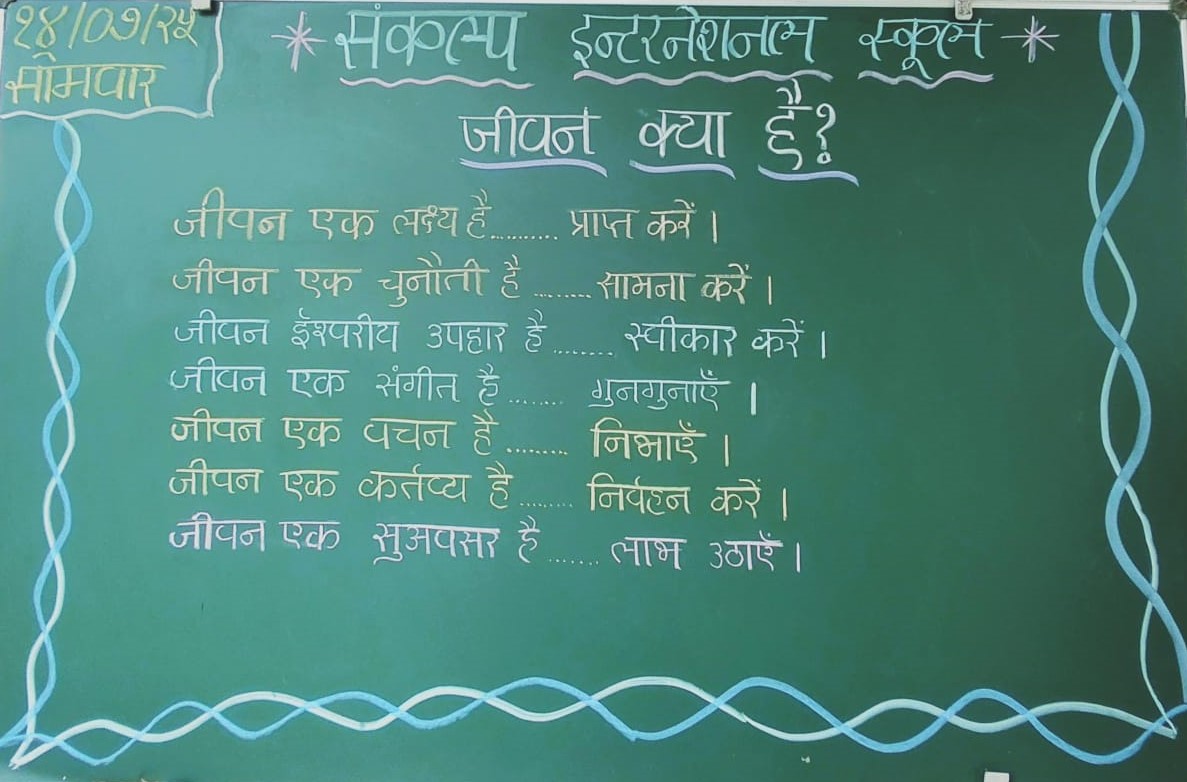 १४/०७/२५
सोमवार
* संकल्प इन्टरनेशनल स्कूल *
जीवन क्या है?
जीवन एक लक्ष्य है.......... प्राप्त करें।
जीवन एक चुनौती है ......... सामना करें।
जीवन ईश्वरीय उपहार है ........ स्वीकार करें।
जीवन एक संगीत है ....... गुनगुनाएँ।
जीवन एक वचन है ......... निभाएँ।
जीवन एक कर्तव्य है ........ निर्वहन करें।
जीवन एक सुअवसर है ....... लाभ उठाएँ।